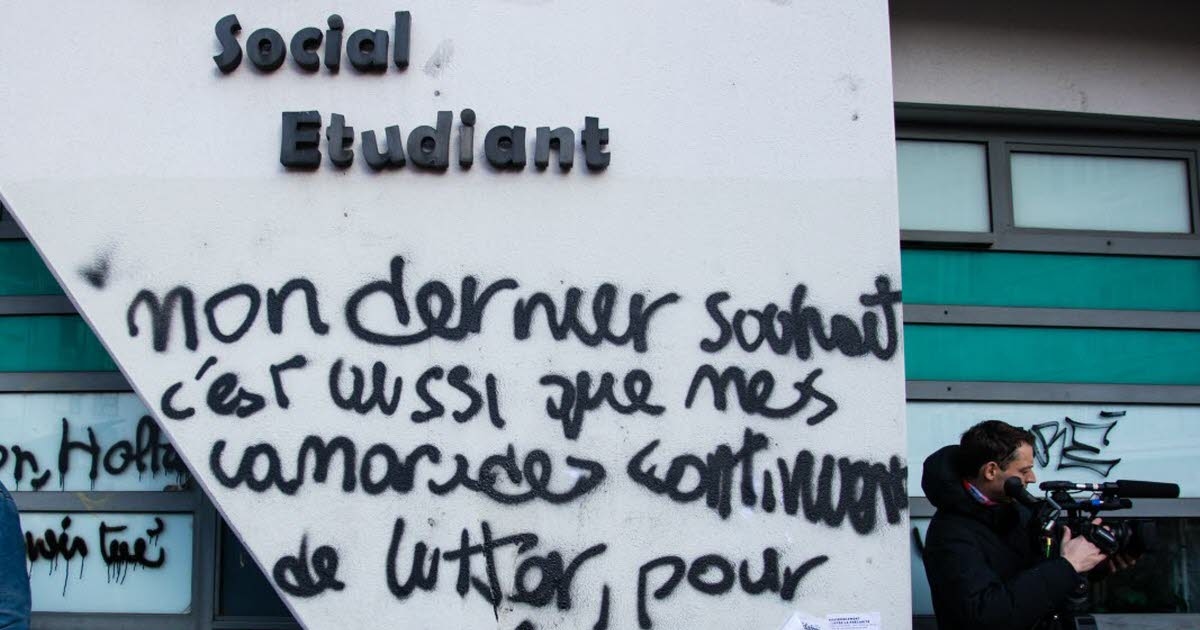 Social
Etudiant
"mon dernier souhait
c'est aussi que mes
camarades continuent
de lutter, pour
on, Hol
RÉ
tué